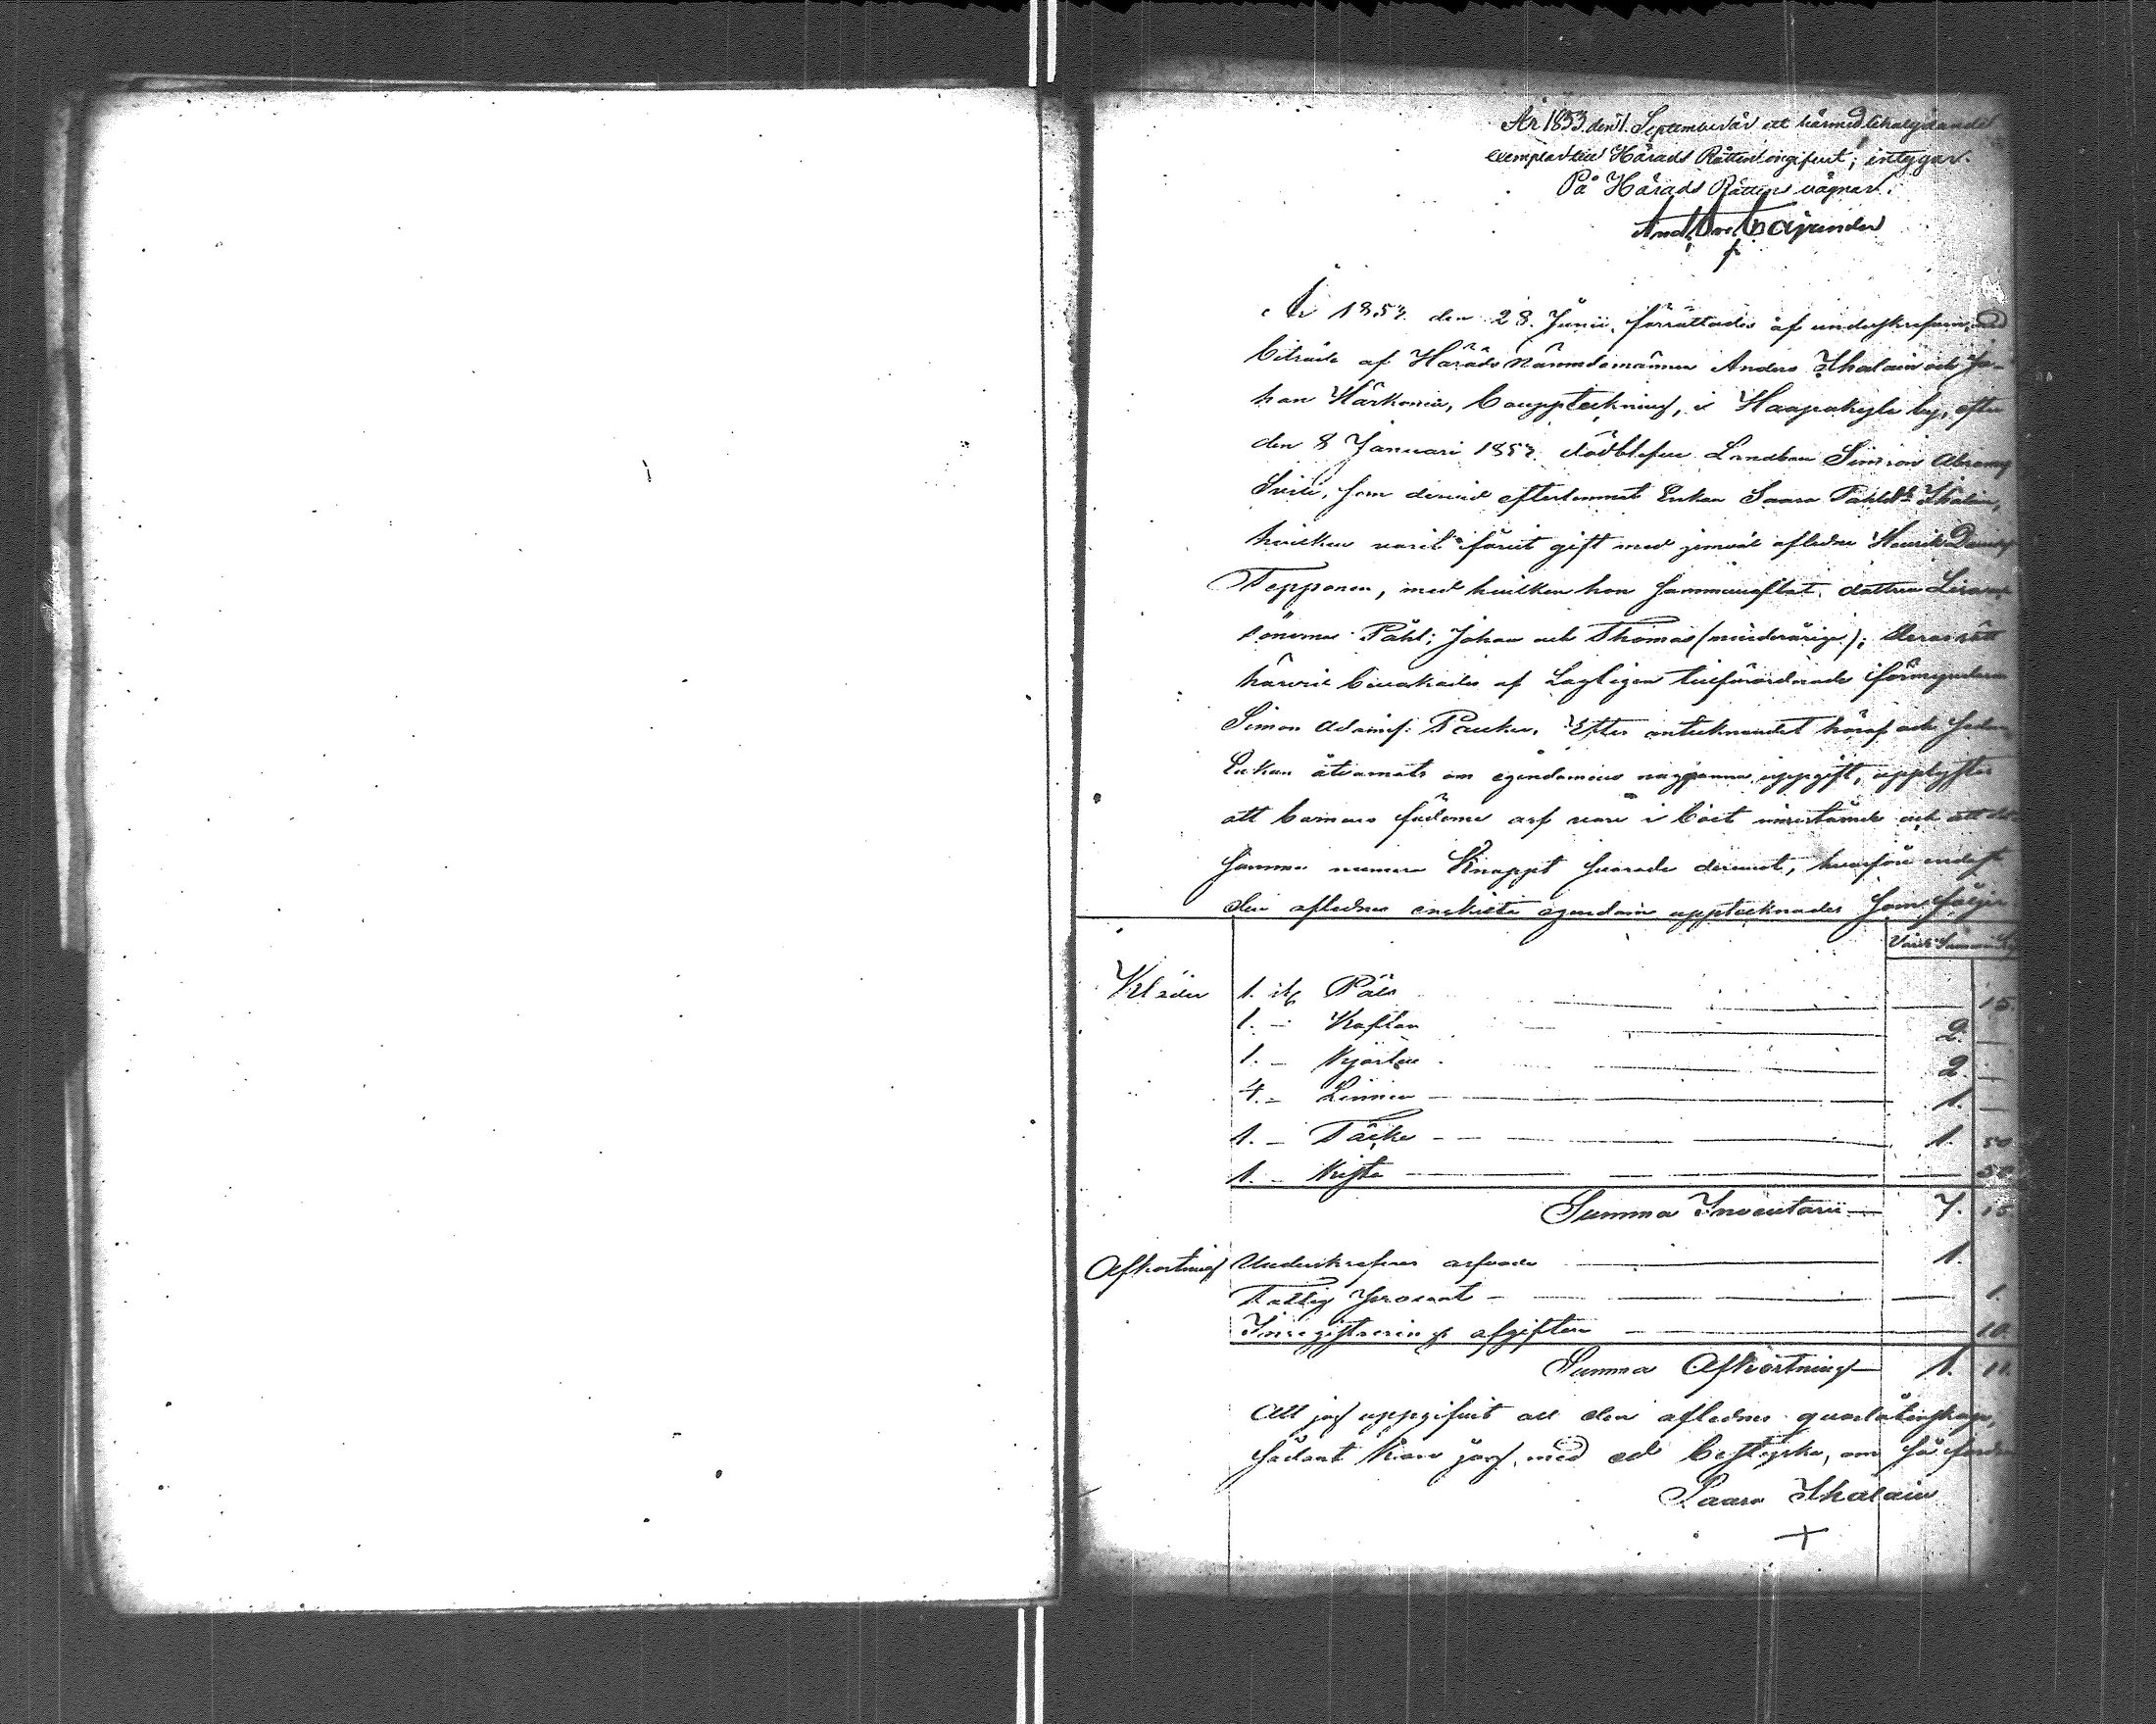 År 1853. den 1. September är ett härmed likalydande
exemplar till Härads Rätten ingifvit; intygar.
På Härads Rättens vägnar.
År 1853. den 28. Junii, förrättades af underskrefven, med
biträde af Härads Nämndemännen Anders Ihalain och Jo-
han Härkönen, bouppteckning, i Haapakylä by, efter
den 8 Januari 1853. dödblefne Landbon Simon Abramss
som dervid efterlemnat Enkan Saara Påhlsdr Ihalain,
hvilken varit förut gift med jemväl aflidne Henrik
Tepponen, med hvilken hon sammanaflat dottren Lisa och
sönerna Påhl; Johan och Thomas (minderårige); deras rätt
härvid bevakades af Lagligen tillförordnade förmyndaren
Simon Adamss: Efter antecknandet häraf och sedan
Enkan åtvarnats om egendomens noggranna uppgift, upplystes
att barnens fäderne arf vore i boet innestående och att det
samma numera Knappt svarade deremot, hvarföre endast
den aflidnes enskilta egendom upptecknades som följer
Kläder 1. st Päls — 15.
1. — Kaftan — 2. —
1. — Kjortel — 2. —
4. — Linnen — 1. —
1. — Täcke — 1. 50
1. — Kista — 50
Summa Inventarii — 7. 15
Afkortning Underskrefnes arfvode — 1.
Fattig procent — 1.
Inregistrerings afgiften — 10.
Summa Afkortning — 1. 11.
Att jag uppgifvit all den aflidnes qvarlåtenskap,
sådant kan jag med ed bestyrka, om så fordras
Saara Ihalain
+